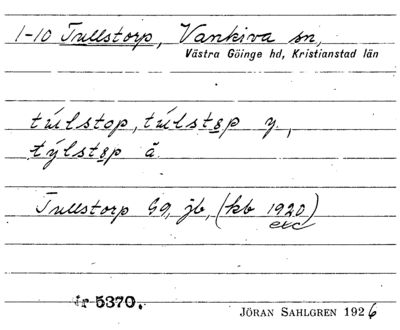 1-10 Tullstorp, Vankiva sn,
Västra Göinge hd, Kristianstad län
túlstop, túlstɘp y,
týlstɘp ä.
Tullstorp G9, jb, (kb 1920)
etc
5370.
JÖRAN SAHLGREN 1926